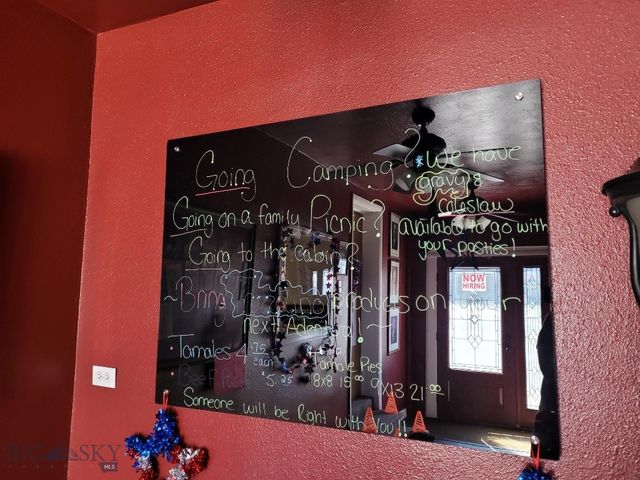 Going Camping?
*We have
gravy &
coleslaw
available to go with
your pasties!
Going on a family Picnic?
Going to the cabin?
~Bring products on your
next Adventure!~
Tamales 4.75 each
Tamale Pies
8x8 15.00 9x13 21.00
5.25
Someone will be Right with You!!
NOW
HIRING
BIG SKY
MLS